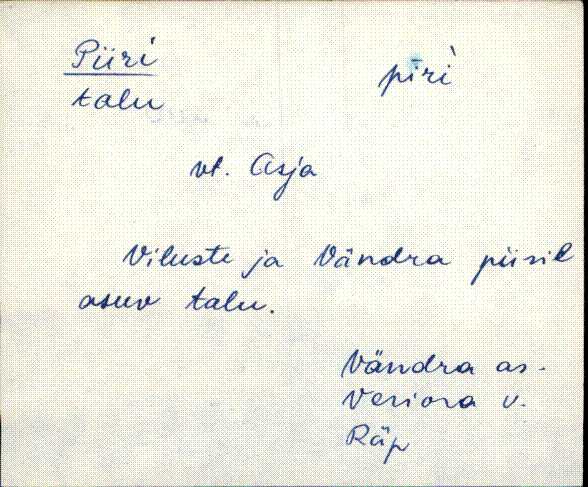 Piiri
talu
pīri
vt. Asja
Viluste ja Vändra piisil
asuv talu.
Vändra as.
Veriora v.
Räp